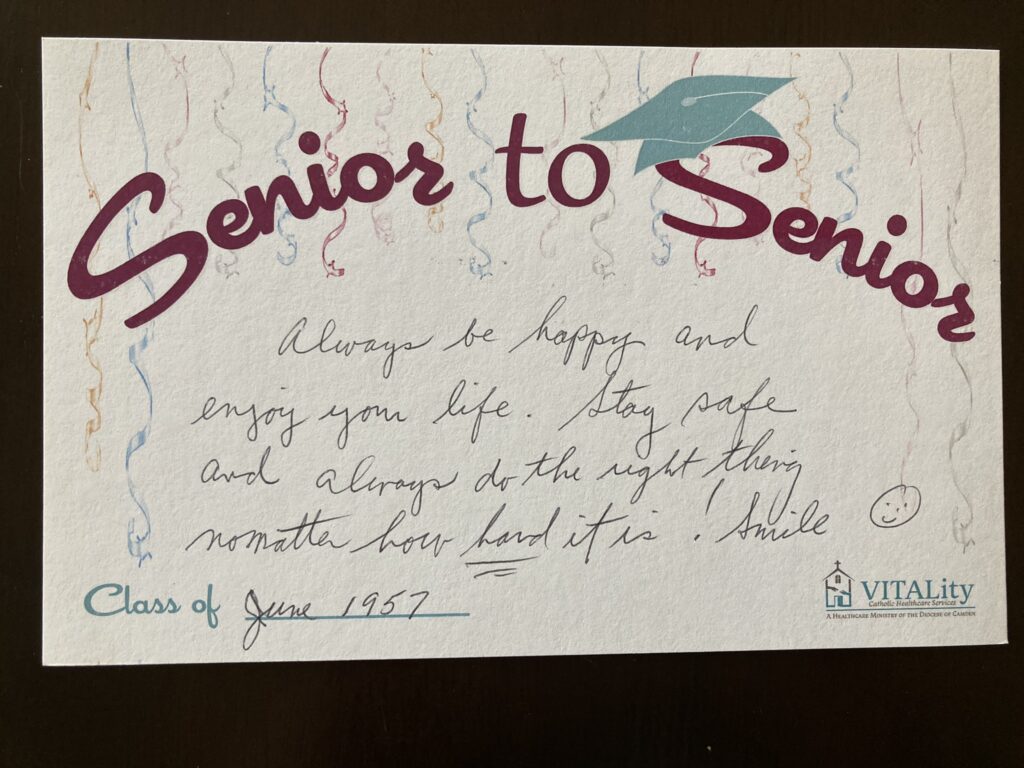 Senior to Senior
Always be happy and
enjoy your life. Stay safe
and always do the right thing
no matter how hard it is! Smile
Class of June 1957
VITALity
Catholic Healthcare Services
A Healthcare Ministry of the Diocese of Camden